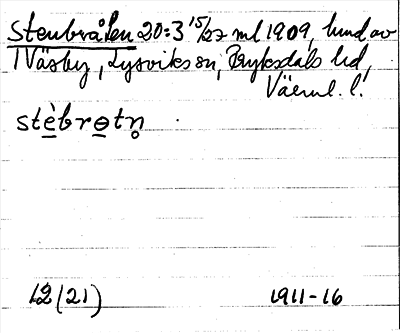 Stenbråten 20:3 15/27 ml 1909, hund av
1 Väsby, Lysviks sn, Fryksdals hd,
Värml. l.
stèbrɵtn̥
12 (21) 1911-16